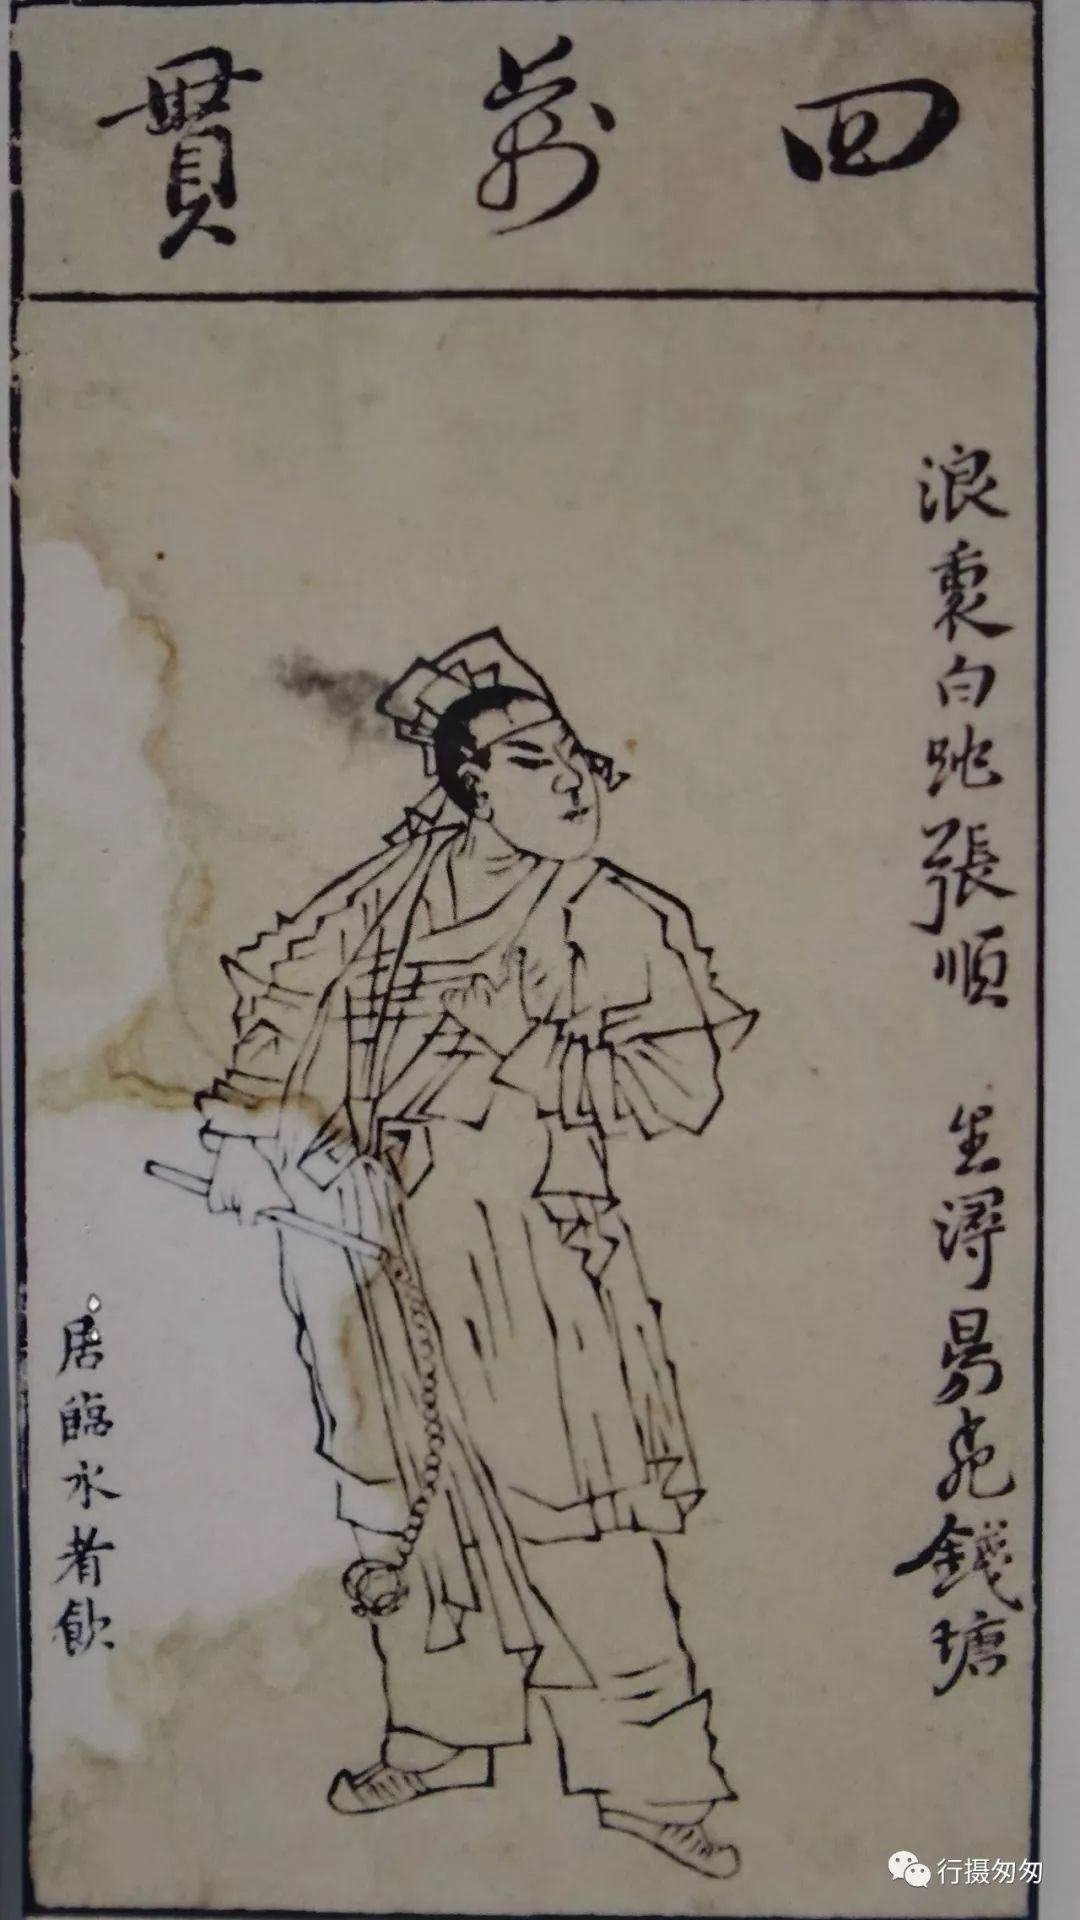 四萬貫
浪裏白跳張順 生潯昜死錢塘
居臨水者飲
行摄匆匆